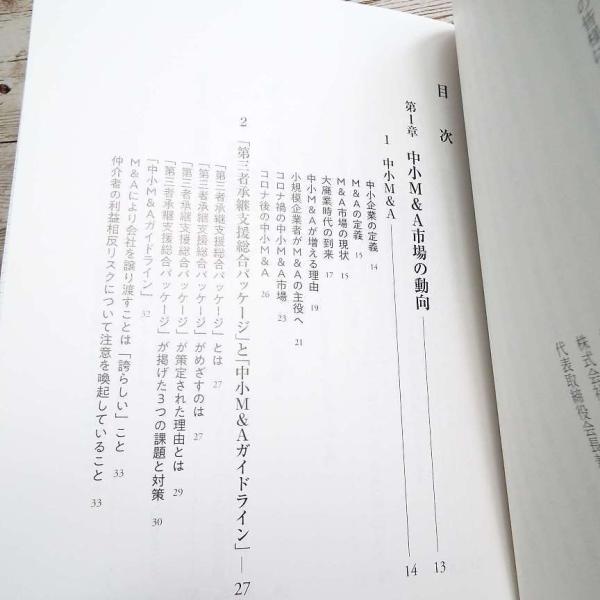 目次
第1章 中小M&A市場の動向 13
1 中小M&A 14
中小企業の定義 14
M&Aの定義 15
M&A市場の現状 15
大廃業時代の到来 17
中小M&Aが増える理由 19
小規模企業者がM&Aの主役へ 21
コロナ禍の中小M&A市場 23
コロナ後の中小M&A 26
2 「第三者承継支援総合パッケージ」と「中小M&Aガイドライン」 27
「第三者承継支援総合パッケージ」とは 27
「第三者承継支援総合パッケージ」がめざすのは 27
「第三者承継支援総合パッケージ」が策定された理由とは 29
「第三者承継支援総合パッケージ」が掲げた3つの課題と対策 30
「中小M&Aガイドライン」 32
M&Aにより会社を譲り渡すことは「誇らしい」こと 33
仲介者の利益相反リスクについて注意を喚起していること 33
株式会社
代表取締役会長